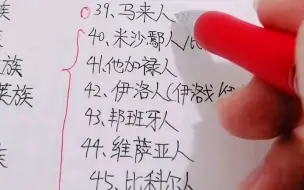 族
39、马来人
40、米沙鄢人/比
族
41、他加禄人
英族
42、伊洛人(伊洛戈/
43、邦班牙人
44、维萨亚人
族
45、比科尔人